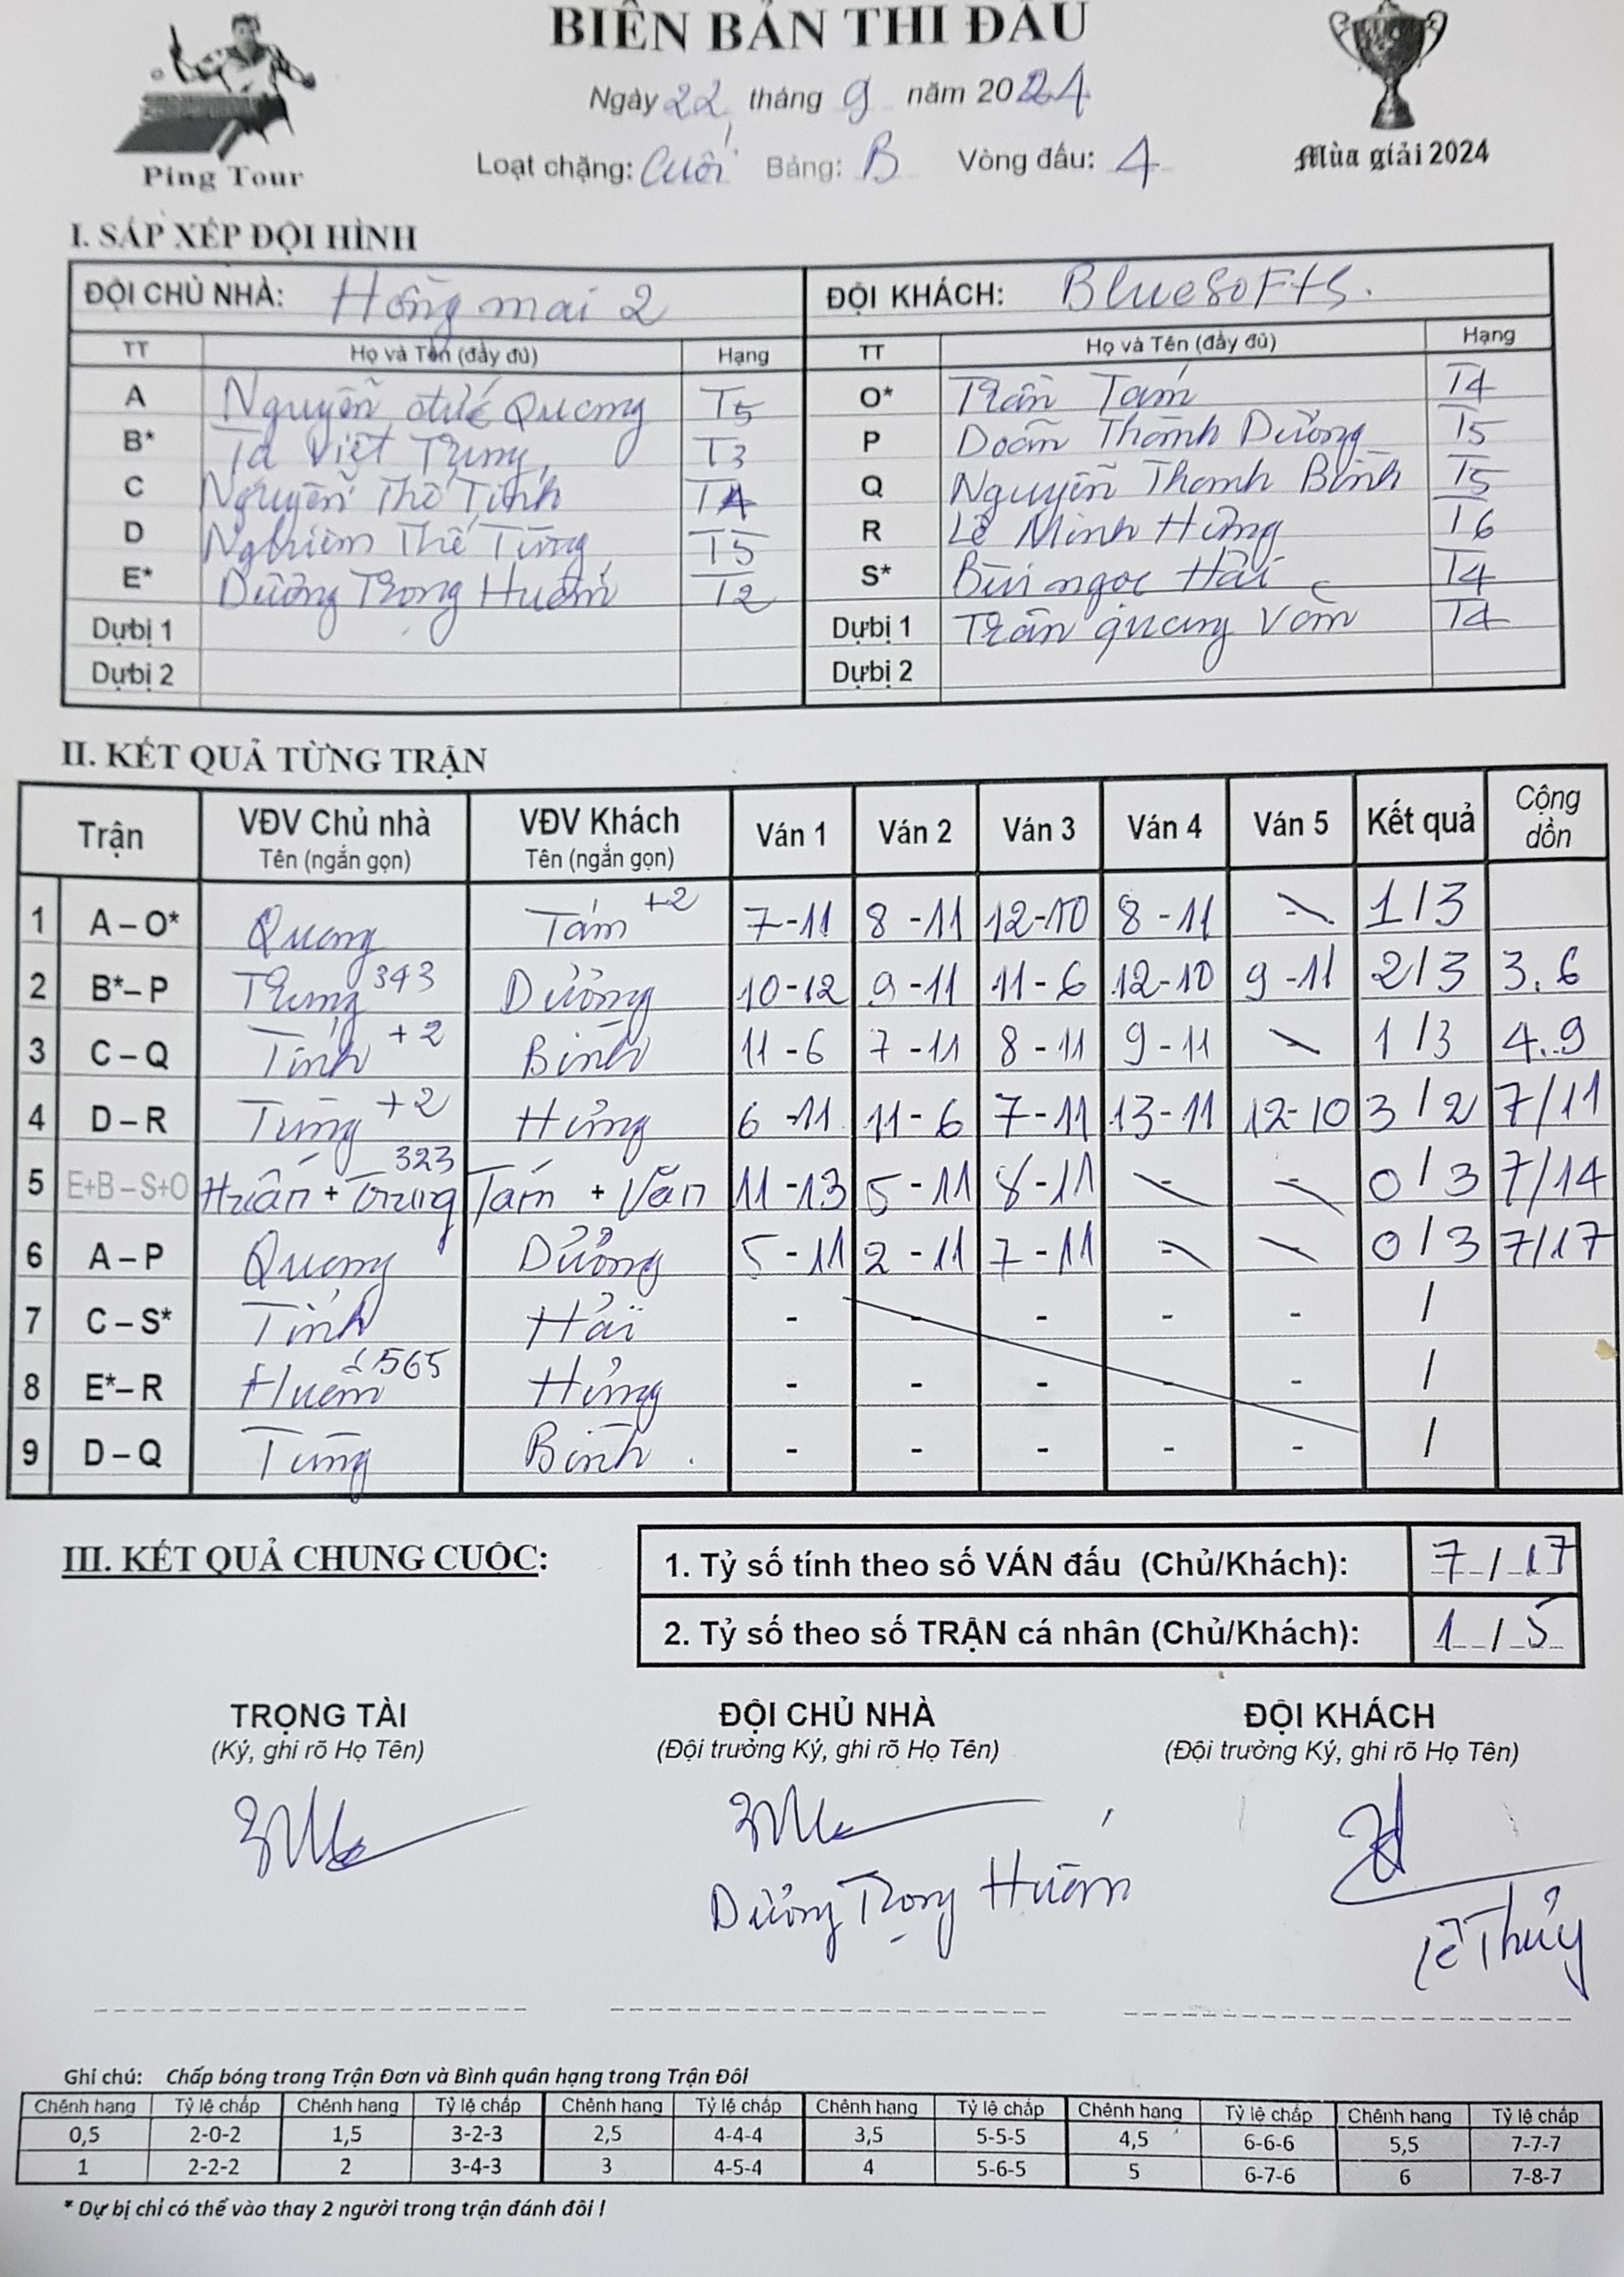 BIÊN BẢN THI ĐẤU
Ngày 22 tháng 9 năm 2024
Loạt chặng: Cuối Bảng: B Vòng đấu: 4
Ping Tour
Mùa giải 2024
I. SẮP XẾP ĐỘI HÌNH
ĐỘI CHỦ NHÀ: Hồng mai 2 ĐỘI KHÁCH: BlueSoFts.
TT Họ và Tên (đầy đủ) Hạng TT Họ và Tên (đầy đủ) Hạng
A Nguyễn Quang T5 O* Trần Tám T4
B* Tạ Việt Trung T3 P Doãn Thành Dương T5
C Nguyễn Thế Tính T4 Q Nguyễn Thanh Bình T5
D Nghiêm Thế Tùng T5 R Lê Minh Hưng T6
E* Dương Trọng Huấn T2 S* Bùi ngọc Hải T4
Dự bị 1 Dự bị 1 Trần quang Văn T4
Dự bị 2 Dự bị 2
II. KẾT QUẢ TỪNG TRẬN
Trận VĐV Chủ nhà Tên (ngắn gọn) VĐV Khách Tên (ngắn gọn) Ván 1 Ván 2 Ván 3 Ván 4 Ván 5 Kết quả Cộng dồn
1 A – O* Quang Tám +2 7-11 8-11 12-10 8-11 - 1/3
2 B*– P Trung 343 Dương 10-12 9-11 11-6 12-10 9-11 2/3 3.6
3 C – Q Tính +2 Bình 11-6 7-11 8-11 9-11 - 1/3 4.9
4 D – R Tùng +2 Hưng 6-11 11-6 7-11 13-11 12-10 3/2 7/11
5 E+B – S+O Huấn + Trung 323 Tám + Văn 11-13 5-11 8-11 - - 0/3 7/14
6 A – P Quang Dương 5-11 2-11 7-11 - - 0/3 7/17
7 C – S* Tính Hải - - - - - /
8 E*– R Huấn 565 Hưng - - - - - /
9 D – Q Tùng Bình - - - - - /
III. KẾT QUẢ CHUNG CUỘC:
1. Tỷ số tính theo số VÁN đấu (Chủ/Khách): 7/17
2. Tỷ số theo số TRẬN cá nhân (Chủ/Khách): 1/5
TRỌNG TÀI ĐỘI CHỦ NHÀ ĐỘI KHÁCH
(Ký, ghi rõ Họ Tên) (Đội trưởng Ký, ghi rõ Họ Tên) (Đội trưởng Ký, ghi rõ Họ Tên)
Dương Trọng Huấn
Lê Thủy
Ghi chú: Chấp bóng trong Trận Đơn và Bình quân hạng trong Trận Đôi
Chênh hạng Tỷ lệ chấp Chênh hạng Tỷ lệ chấp Chênh hạng Tỷ lệ chấp Chênh hạng Tỷ lệ chấp Chênh hạng Tỷ lệ chấp Chênh hạng Tỷ lệ chấp
0,5 2-0-2 1,5 3-2-3 2,5 4-4-4 3,5 5-5-5 4,5 6-6-6 5,5 7-7-7
1 2-2-2 2 3-4-3 3 4-5-4 4 5-6-5 5 6-7-6 6 7-8-7
* Dự bị chỉ có thể vào thay 2 người trong trận đánh đôi !